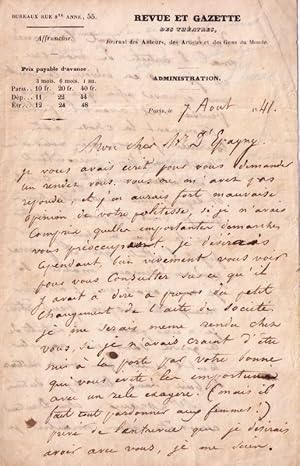 BUREAUX RUE Ste ANNE, 55.
Affranchir.
REVUE ET GAZETTE
DES THÉÂTRES,
Journal des Auteurs, des Artistes et des Gens du Monde.
Prix payable d'avance.
3 mois. 6 mois. 1 an.
Paris... 10 fr. 20 fr. 40 fr.
Dép... 11 22 44
Étr.... 12 24 48
ADMINISTRATION.
Paris, le 7 Aout 1841.
Mon cher Mr D'Epagny
je vous avais écrit pour vous demander
un rendez vous. vous ne m'avez pas
répondu, et j'en aurais fort mauvaise
opinion de votre politesse, si je n'avais
compris quelles importantes démarches
vous préoccupent. je désirerais
cependant bien vivement vous voir
pour vous consulter sur ce qu'il
y avait à dire à propos du petit
changement de l'acte de société.
je me serais même rendu chez
vous, si je n'avais craint d'être
mis à la porte par votre bonne
qui vous évite les importuns
avec un zèle exagéré. (mais il
faut tout pardonner aux femmes.)
privé de l'entrevue que je désirais
avoir avec vous, je me suis